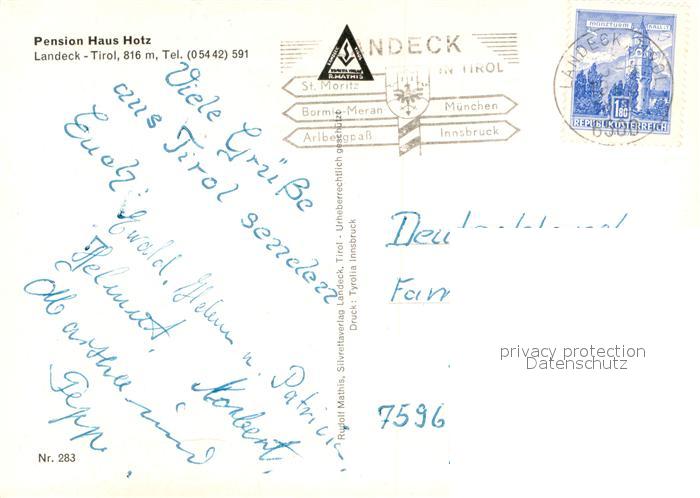 Pension Haus Hotz
Landeck - Tirol, 816 m, Tel. (0 54 42) 591
R. MATHIS
LANDECK
IN TIROL
St. Moritz
Bormio-Meran
München
Arlbergpaß
Innsbruck
MÜNZTURM HALL I. T.
1.80
REPUBLIK ÖSTERREICH
LANDECK
Viele Grüße
aus Tirol senden
Euch
Ewald, u. Patricia,
Helmut, Norbert,
und
Sepp.
Rudolf Mathis, Silvrettaverlag Landeck, Tirol - Urheberrechtlich geschützt
Druck: Tyrolia Innsbruck
Fam
7596
privacy protection
Datenschutz
Nr. 283